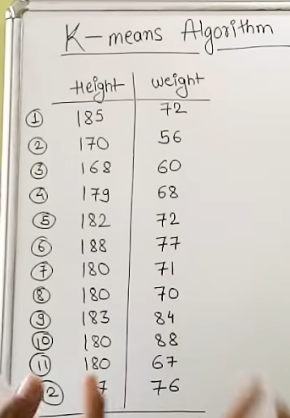 K-means Algorithm
Height weight
① 185 72
② 170 56
③ 168 60
④ 179 68
⑤ 182 72
⑥ 188 77
⑦ 180 71
⑧ 180 70
⑨ 183 84
⑩ 180 88
⑪ 180 67
7 76